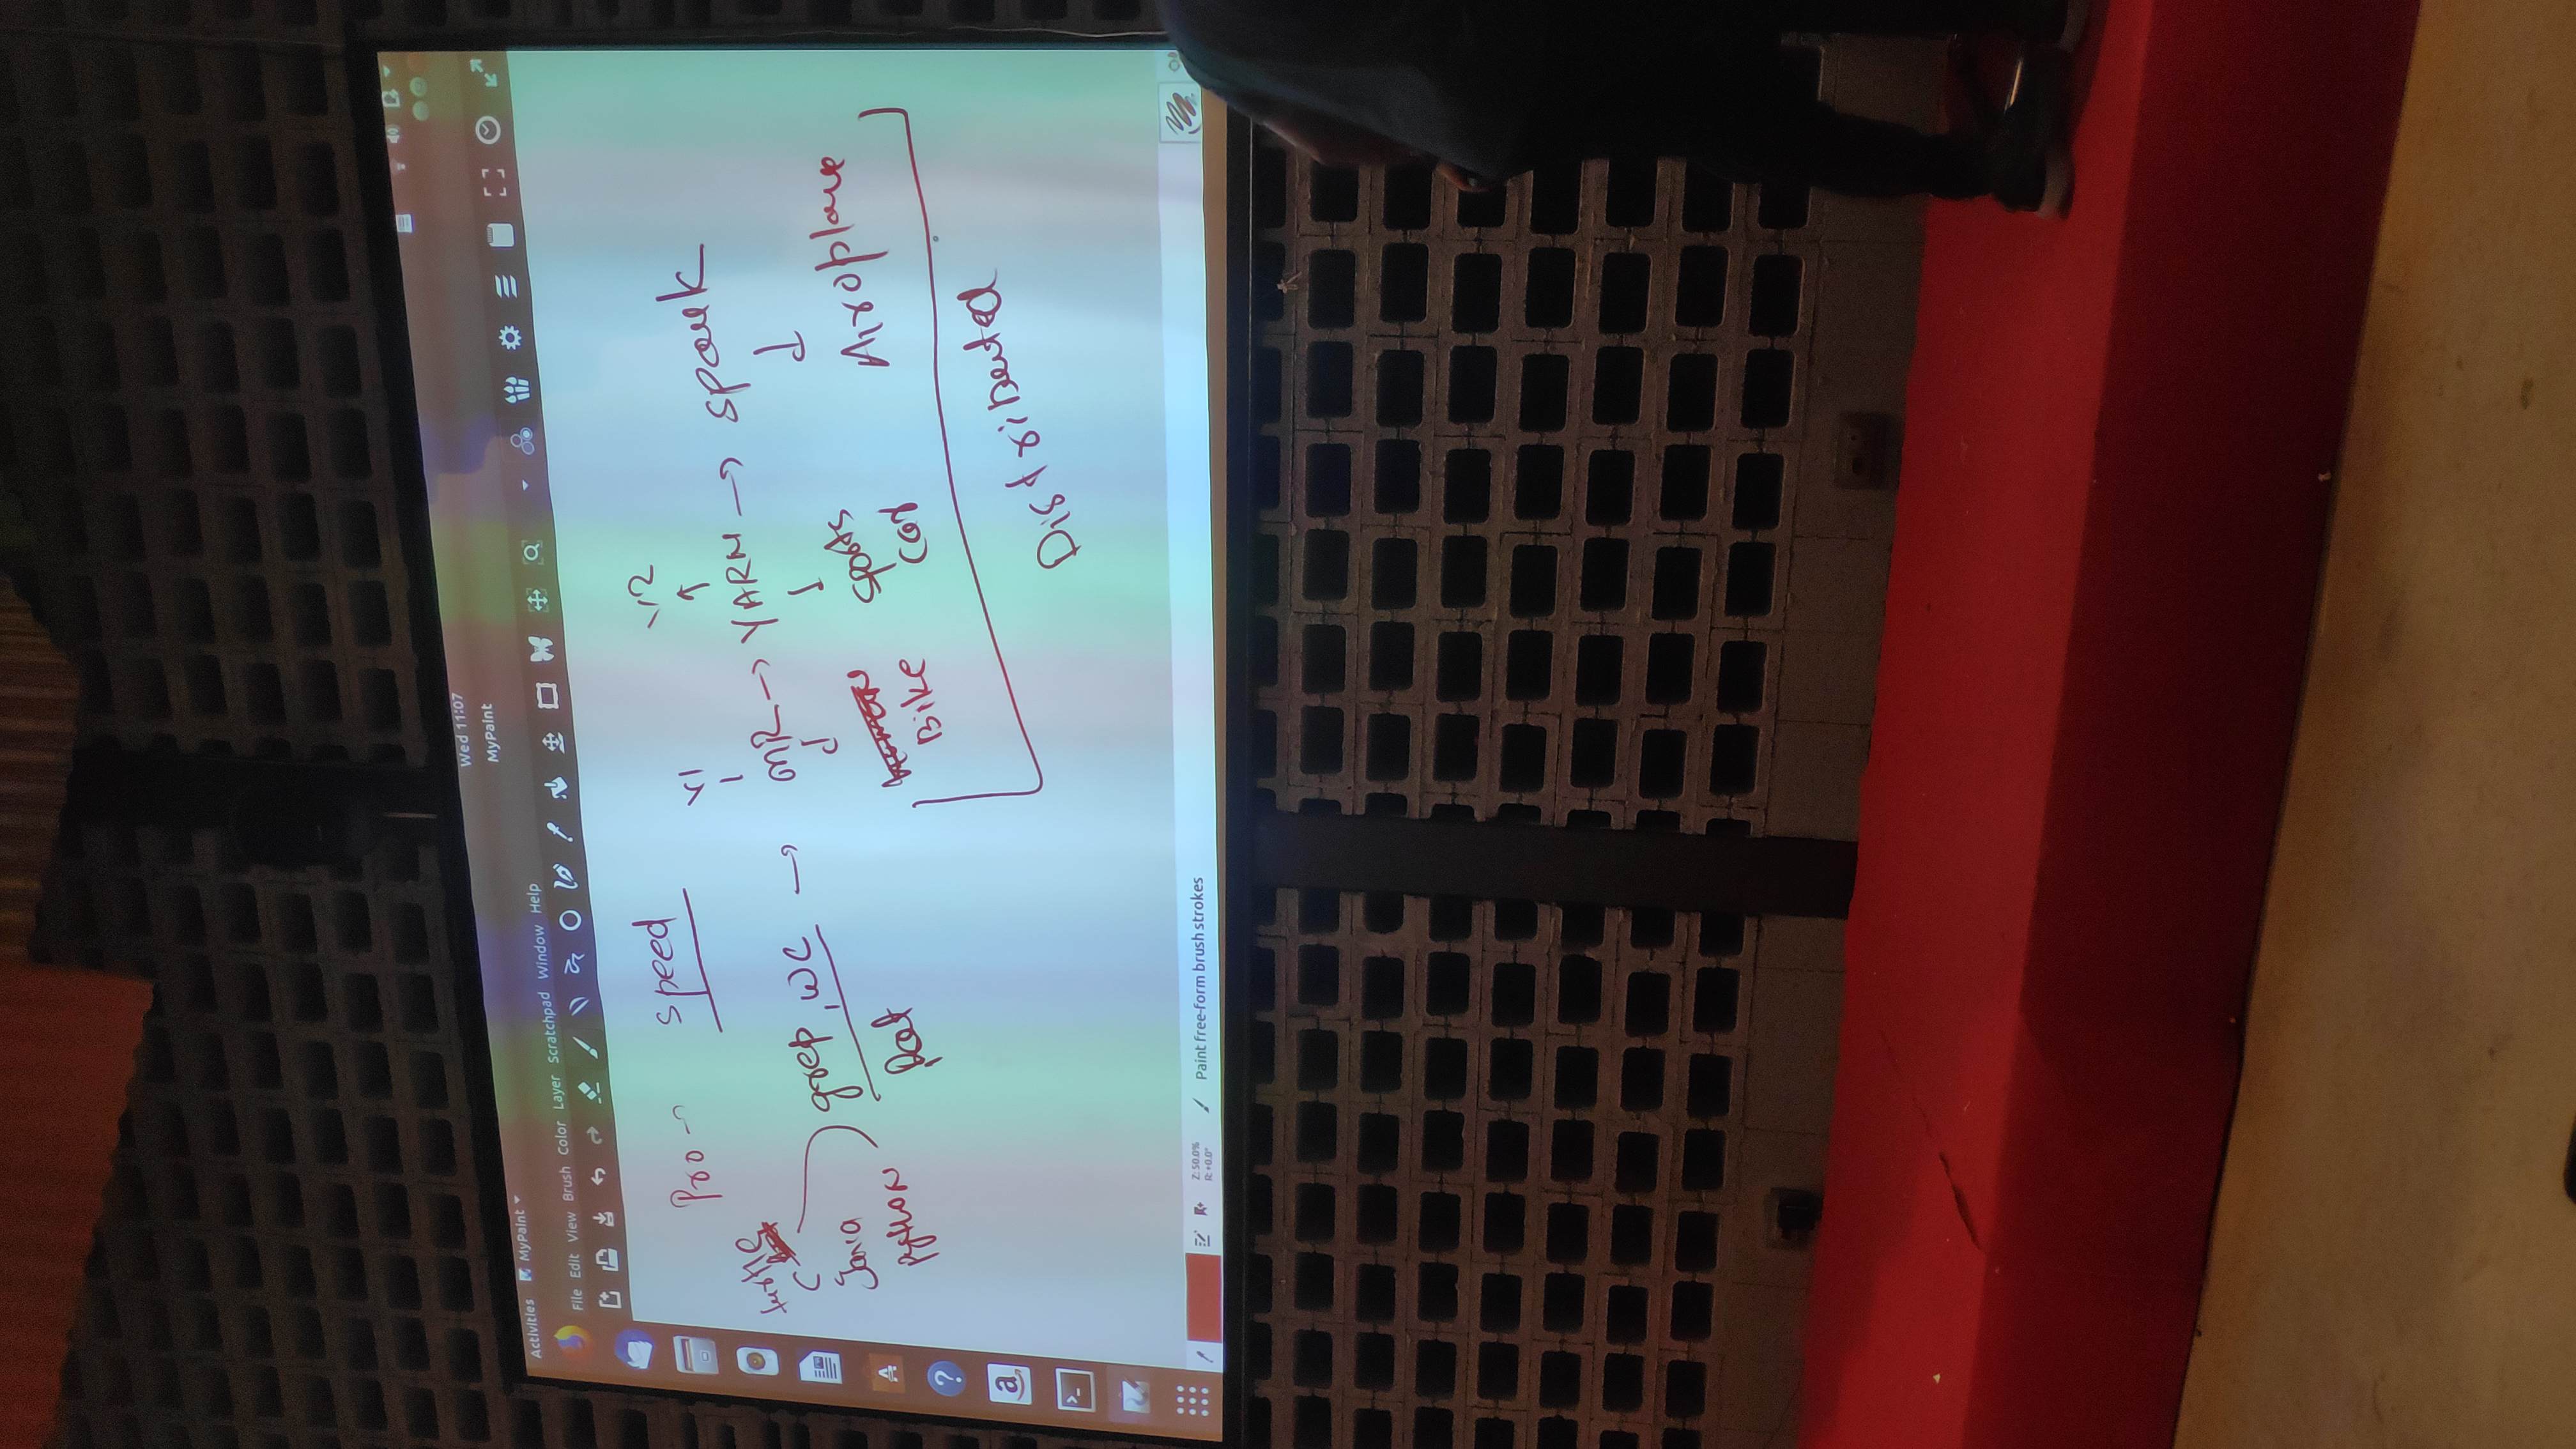 Wed 11:07
Activities MyPaint
MyPaint
File Edit View Brush Color Layer Scratchpad Window Help
Pro speed
V1 V2
turtle
C
Java
python
grep, WC → MR → YARN → spark
Bike
sports
car
Airoplane
Distributed
a
Z: 50.0%
R: +0.0°
Paint free-form brush strokes